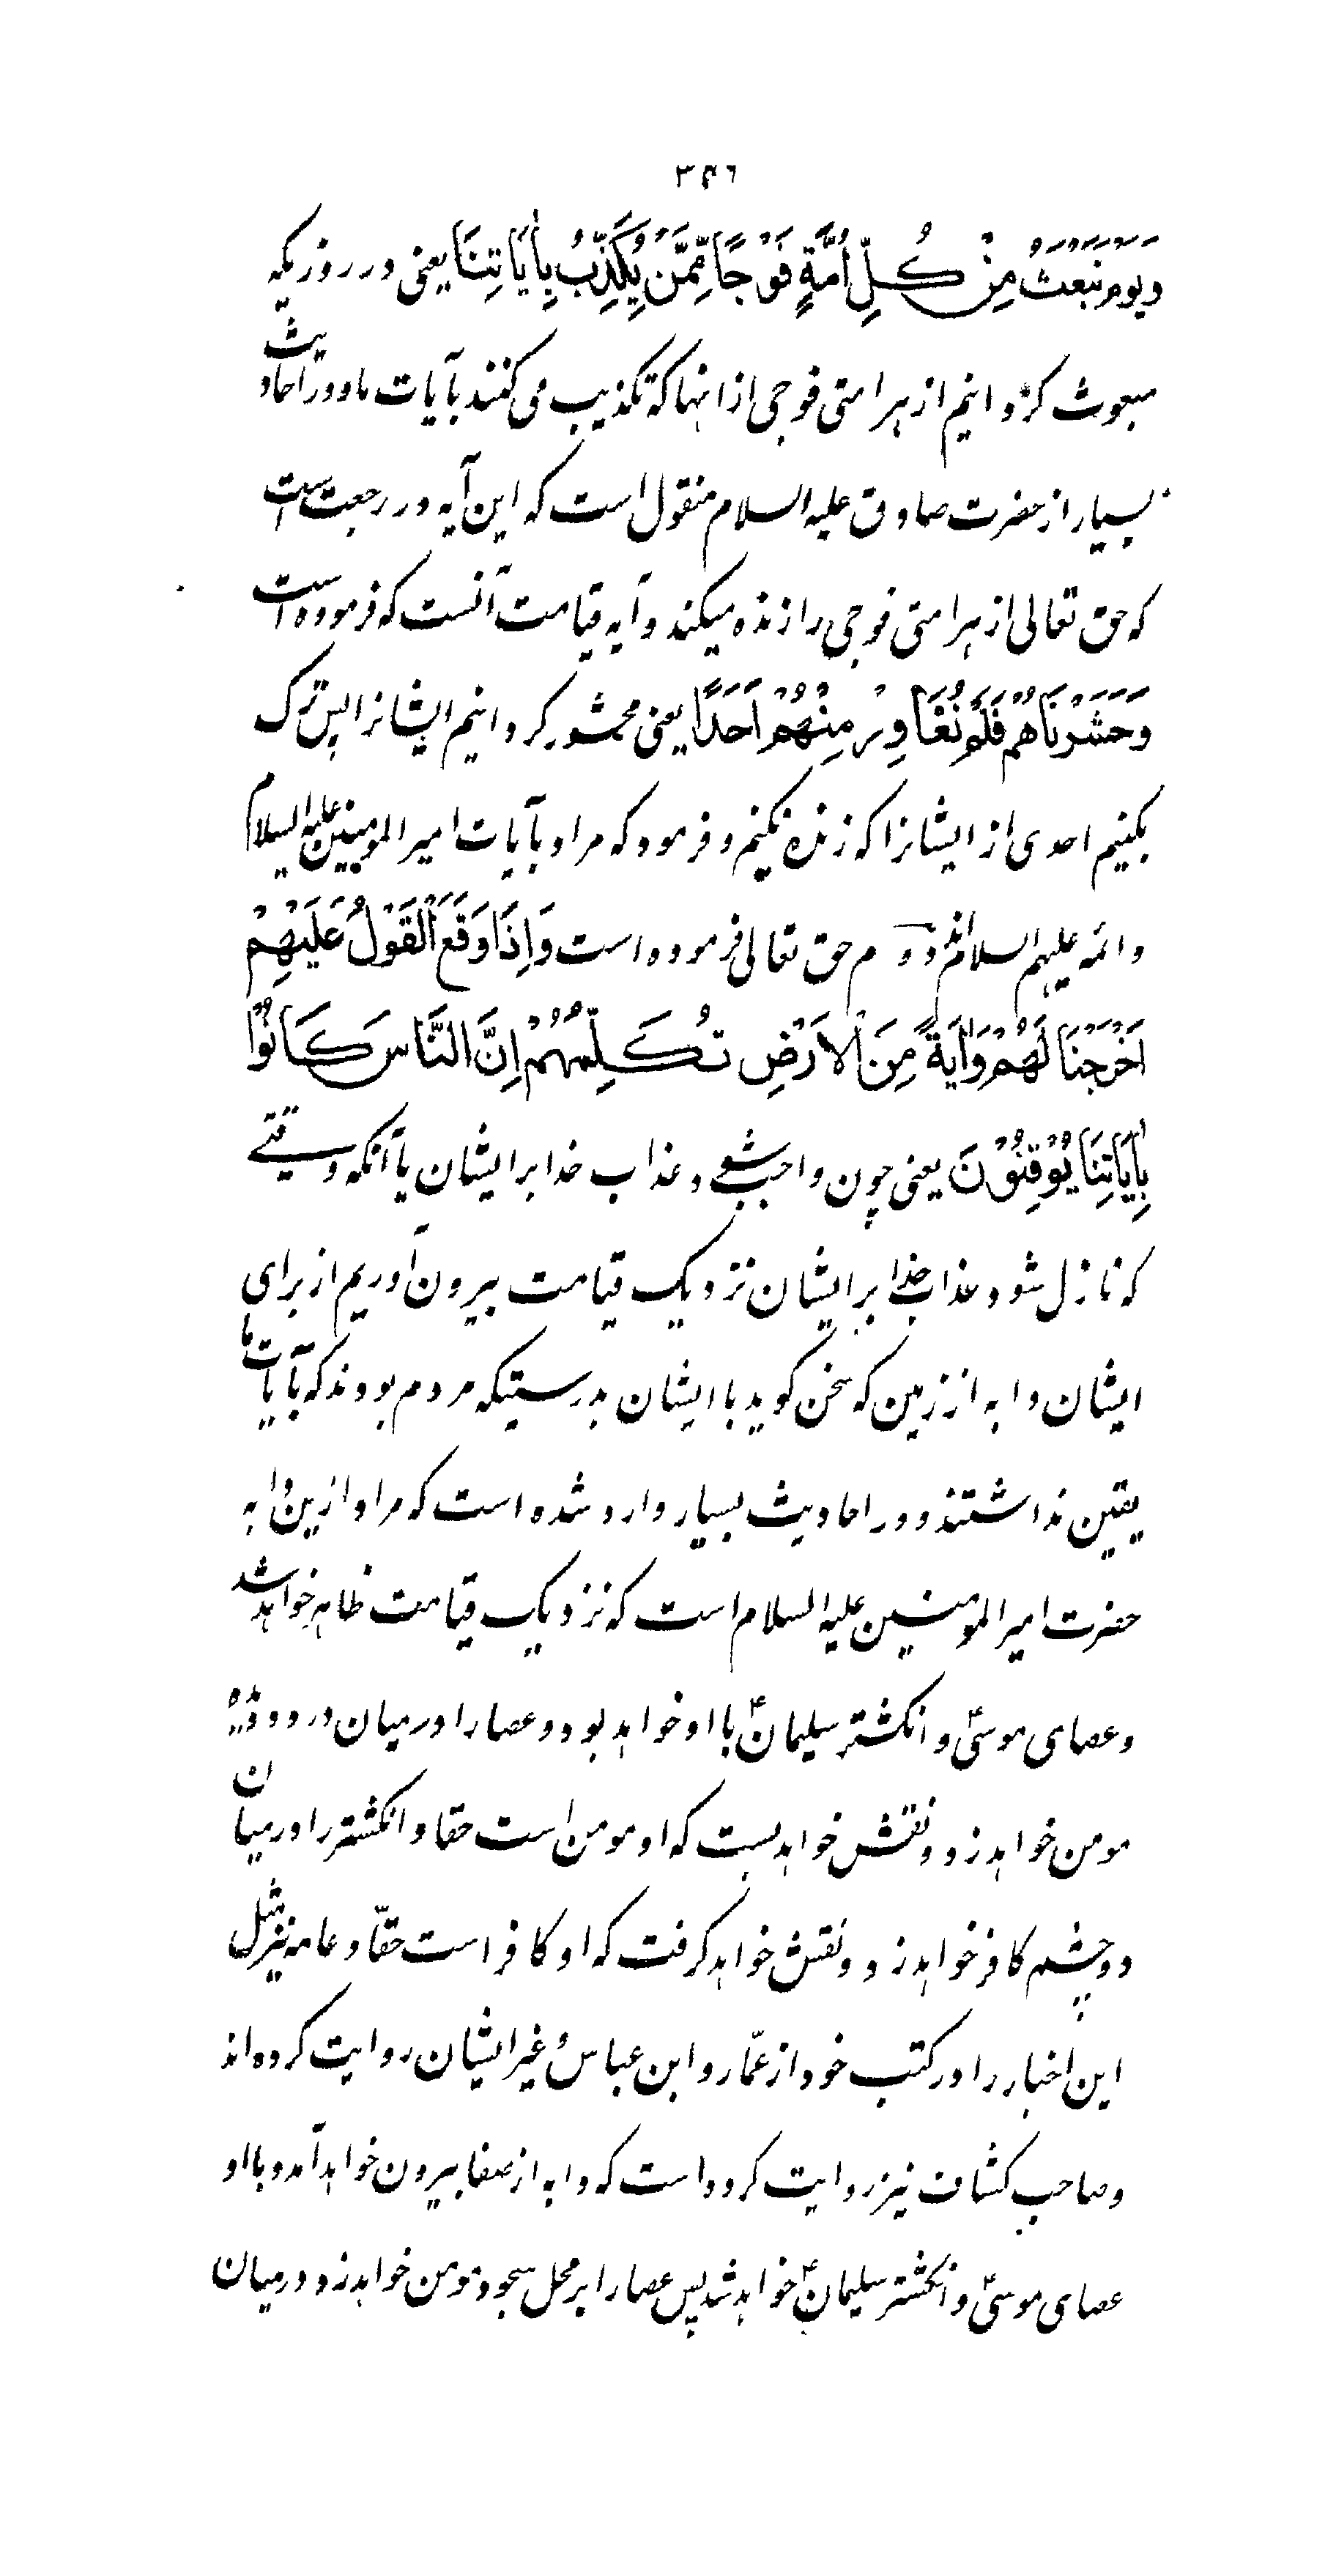 ۳۴۶
وَيَوْمَ نَبْعَثُ مِنْ كُلِّ اُمَّةٍ فَوْجًا مِّمَّنْ يُكَذِّبُ بِاٰيَاتِنَا یعنی در روزیکه
مبعوث کردانیم از هر امتی فوجی از انها که تکذیب می کنند بآیات ما و در احادیث
بسیار از حضرت صادق علیه السلام منقول است که این آیه در رجعت است
که حق تعالی از هر امتی فوجی را زنده میکند و آیه قیامت آنست که فرموده است
وَحَشَرْنَاهُمْ فَلَمْ نُغَادِرْ مِنْهُمْ اَحَدًا یعنی محشور کردانیم ایشانرا پس ترک
نکنیم احدی از ایشانرا که زنده نکنیم و فرمود که مراد بآیات امیر المومنین علیه السلام
و ائمه علیهم السلام اند دویم حق تعالی فرموده است وَاِذَا وَقَعَ الْقَوْلُ عَلَيْهِمْ
اَخْرَجْنَا لَهُمْ دَابَّةً مِنَ الْاَرْضِ تُكَلِّمُهُمْ اِنَّ النَّاسَ كَانُوْا
بِاٰيَاتِنَا يُوْقِنُوْنَ یعنی چون واجب شود عذاب خدا بر ایشان یا آنکه وقتی
که نازل شود عذاب خدا بر ایشان نزدیک قیامت بیرون آوریم از برای
ایشان دابه از زمین که سخن کوید با ایشان بدرستیکه مردم بودند که بآیات ما
یقین نداشتند و در احادیث بسیار وارد شده است که مراد ازین دابه
حضرت امیر المومنین علیه السلام است که نزدیک قیامت ظاهر خواهد شد
و عصای موسیٰؑ و انکشتر سلیمانؑ با او خواهد بود و عصا را در میان دو دیده
مومن خواهد زد و نقش خواهد بست که او مومن است حقا و انکشتر را در میان
دو چشم کافر خواهد زد و نقش خواهد کرفت که او کافر است حقّا و عامه نیز مثل
این اخبار را در کتب خود از عمّار و ابن عباس و غیر ایشان روایت کرده اند
و صاحب کشاف نیز روایت کرده است که دابه از صفا بیرون خواهد آمد و با او
عصای موسیٰؑ و انکشتر سلیمانؑ خواهد شد پس عصا را بر محل سجود مومن خواهد زد و در میان